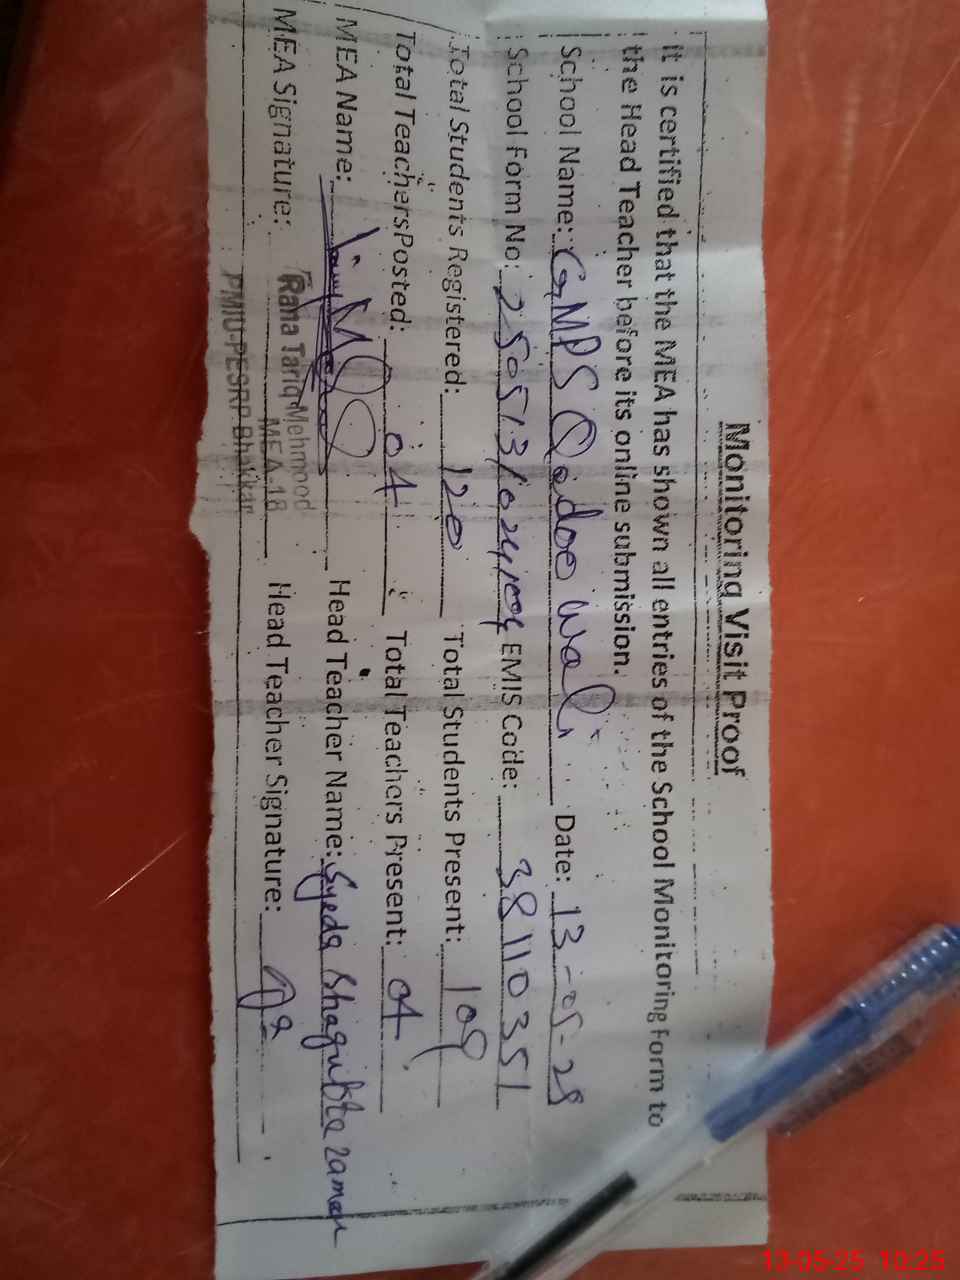 Monitoring Visit Proof
It is certified that the MEA has shown all entries of the School Monitoring Form to
the Head Teacher before its online submission.
School Name: GMPS Qadoo wali Date: 13-05-25
School Form No: EMIS Code: 38110351
Total Students Registered: 120 Total Students Present: 109
Total Teachers Posted: 04 Total Teachers Present: 04
MEA Name: Head Teacher Name: Syeda Shagufta Zaman
MEA Signature: Head Teacher Signature:
Rana Tariq Mehmood
MEA-18
PMIU-PESRP Bhakkar
13-05-25 10:25